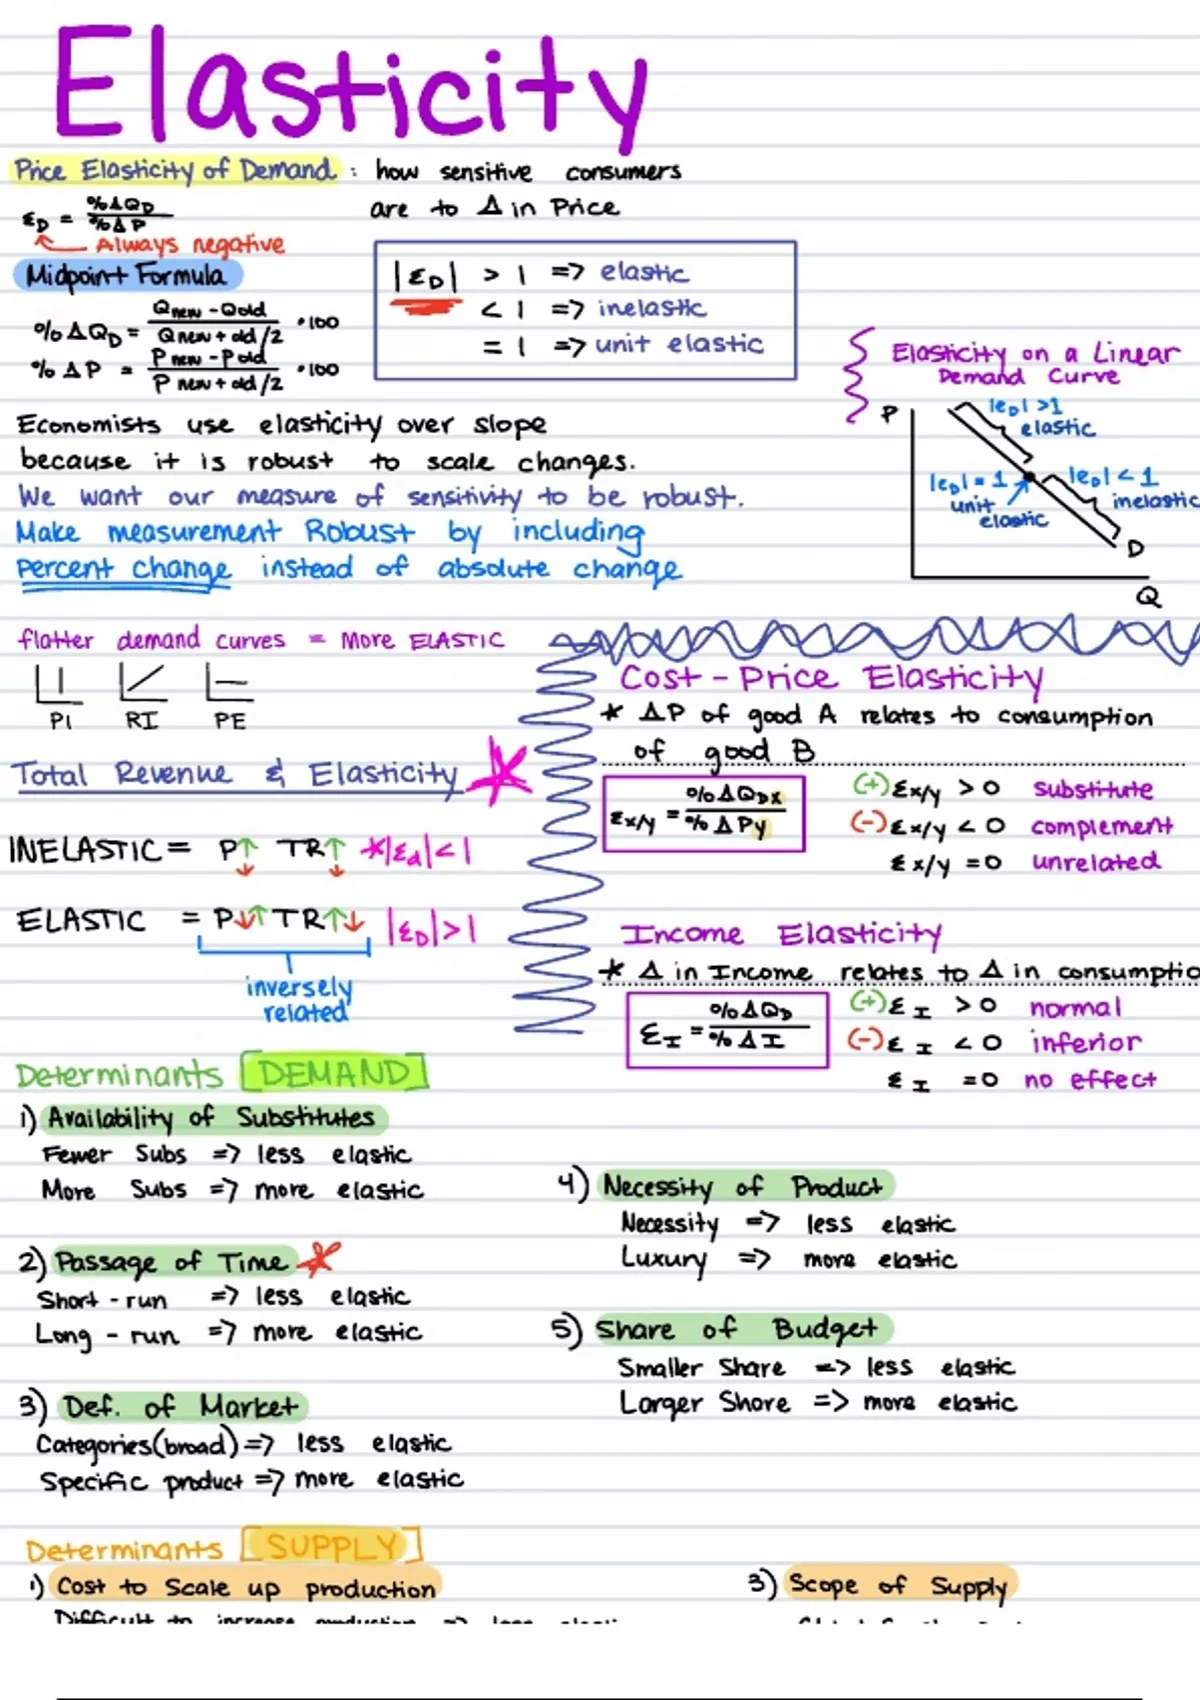 Elasticity
Price Elasticity of Demand : how sensitive consumers
are to Δ in Price
ɛD = %ΔQD / %ΔP
Always negative
Midpoint Formula
%ΔQD = Qnew - Qold / Qnew + old/2 • 100
%ΔP = Pnew - Pold / Pnew + old/2 • 100
|ɛD| > 1 => elastic
< 1 => inelastic
= 1 => unit elastic
Economists use elasticity over slope
because it is robust to scale changes.
We want our measure of sensitivity to be robust.
Make measurement Robust by including
percent change instead of absolute change
Elasticity on a Linear
Demand Curve
P
|eD| >1
elastic
|eD| = 1
unit
elastic
|eD| < 1
inelastic
D
Q
flatter demand curves = More ELASTIC
PI RI PE
Total Revenue & Elasticity
INELASTIC = P↑↓ TR↑↓ *|ɛd|<1
ELASTIC = P↓↑ TR↑↓ |ɛD|>1
inversely
related
Cost - Price Elasticity
* ΔP of good A relates to consumption
of good B
ɛx/y = %ΔQDx / %ΔPy
(+) ɛx/y > 0 substitute
(-) ɛx/y < 0 complement
ɛx/y = 0 unrelated
Income Elasticity
* Δ in Income relates to Δ in consumptio
ɛI = %ΔQD / %ΔI
(+) ɛI > 0 normal
(-) ɛI < 0 inferior
ɛI = 0 no effect
Determinants [DEMAND]
1) Availability of Substitutes
Fewer Subs => less elastic
More Subs => more elastic
2) Passage of Time *
Short - run => less elastic
Long - run => more elastic
3) Def. of Market
Categories (broad) => less elastic
Specific product => more elastic
4) Necessity of Product
Necessity => less elastic
Luxury => more elastic
5) Share of Budget
Smaller Share => less elastic
Larger Share => more elastic
Determinants [SUPPLY]
1) Cost to Scale up production
Difficult to increase production => less elastic
3) Scope of Supply